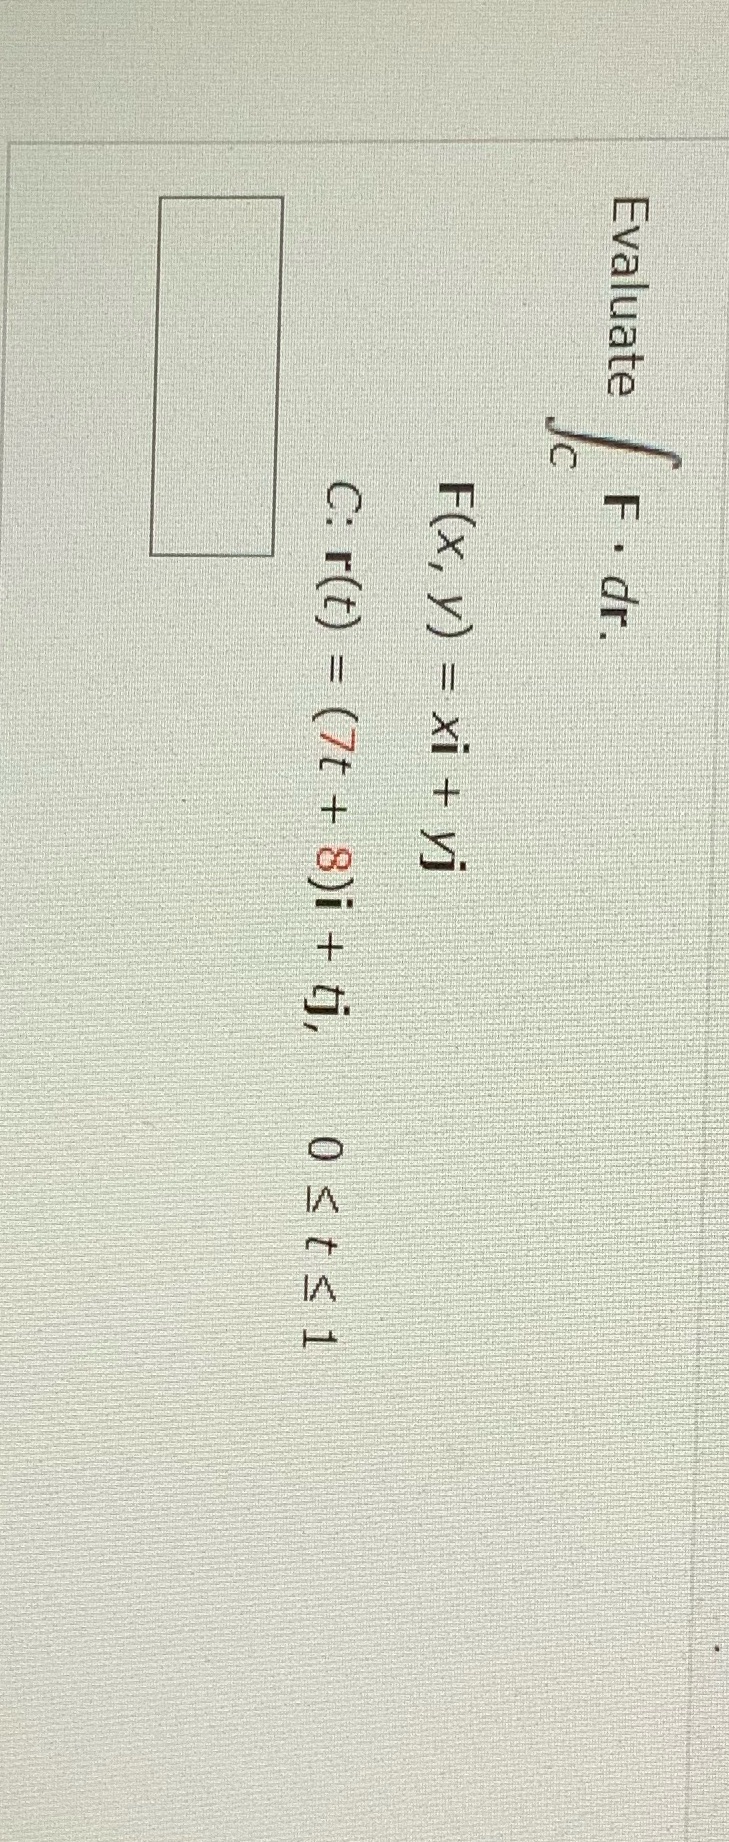 Evaluate ∫_C F · dr.
F(x, y) = xi + yj
C: r(t) = (7t + 8)i + tj, 0 ≤ t ≤ 1